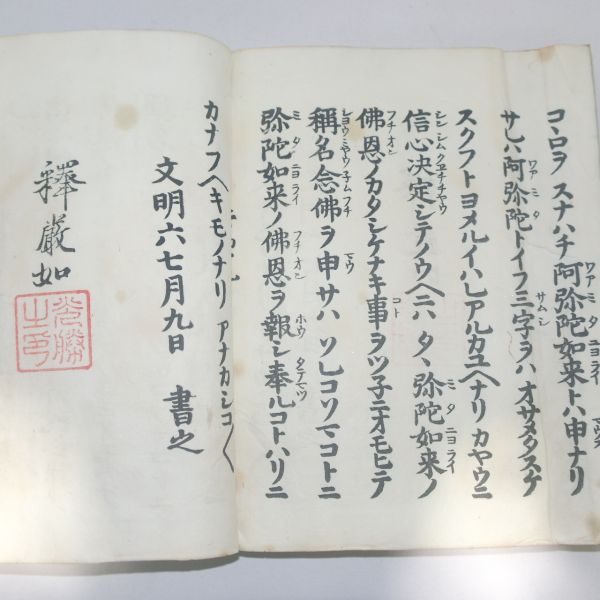 コヽロヲ スナハチ 阿弥陀如来トハ申ナリ
サレハ阿弥陀トイフ三字ヲハ オサメタスケ
スクフトヨメルイハレアルカユヘナリ カヤウニ
信心决定シテノウヘニハ タヽ弥陀如来ノ
佛恩ノカタシケナキ事ヲツ子ニオモヒテ
稱名念佛ヲ申サハ ソレコソマコトニ
弥陀如来ノ佛恩ヲ報シ奉ルコトハリニ
カナフヘキモノナリ アナカシコ〱
文明六七月九日 書之
釋嚴如
光勝之印